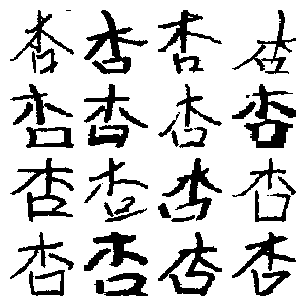 杏杏杏杏
杏杏杏杏
杏杏杏杏
杏杏杏杏